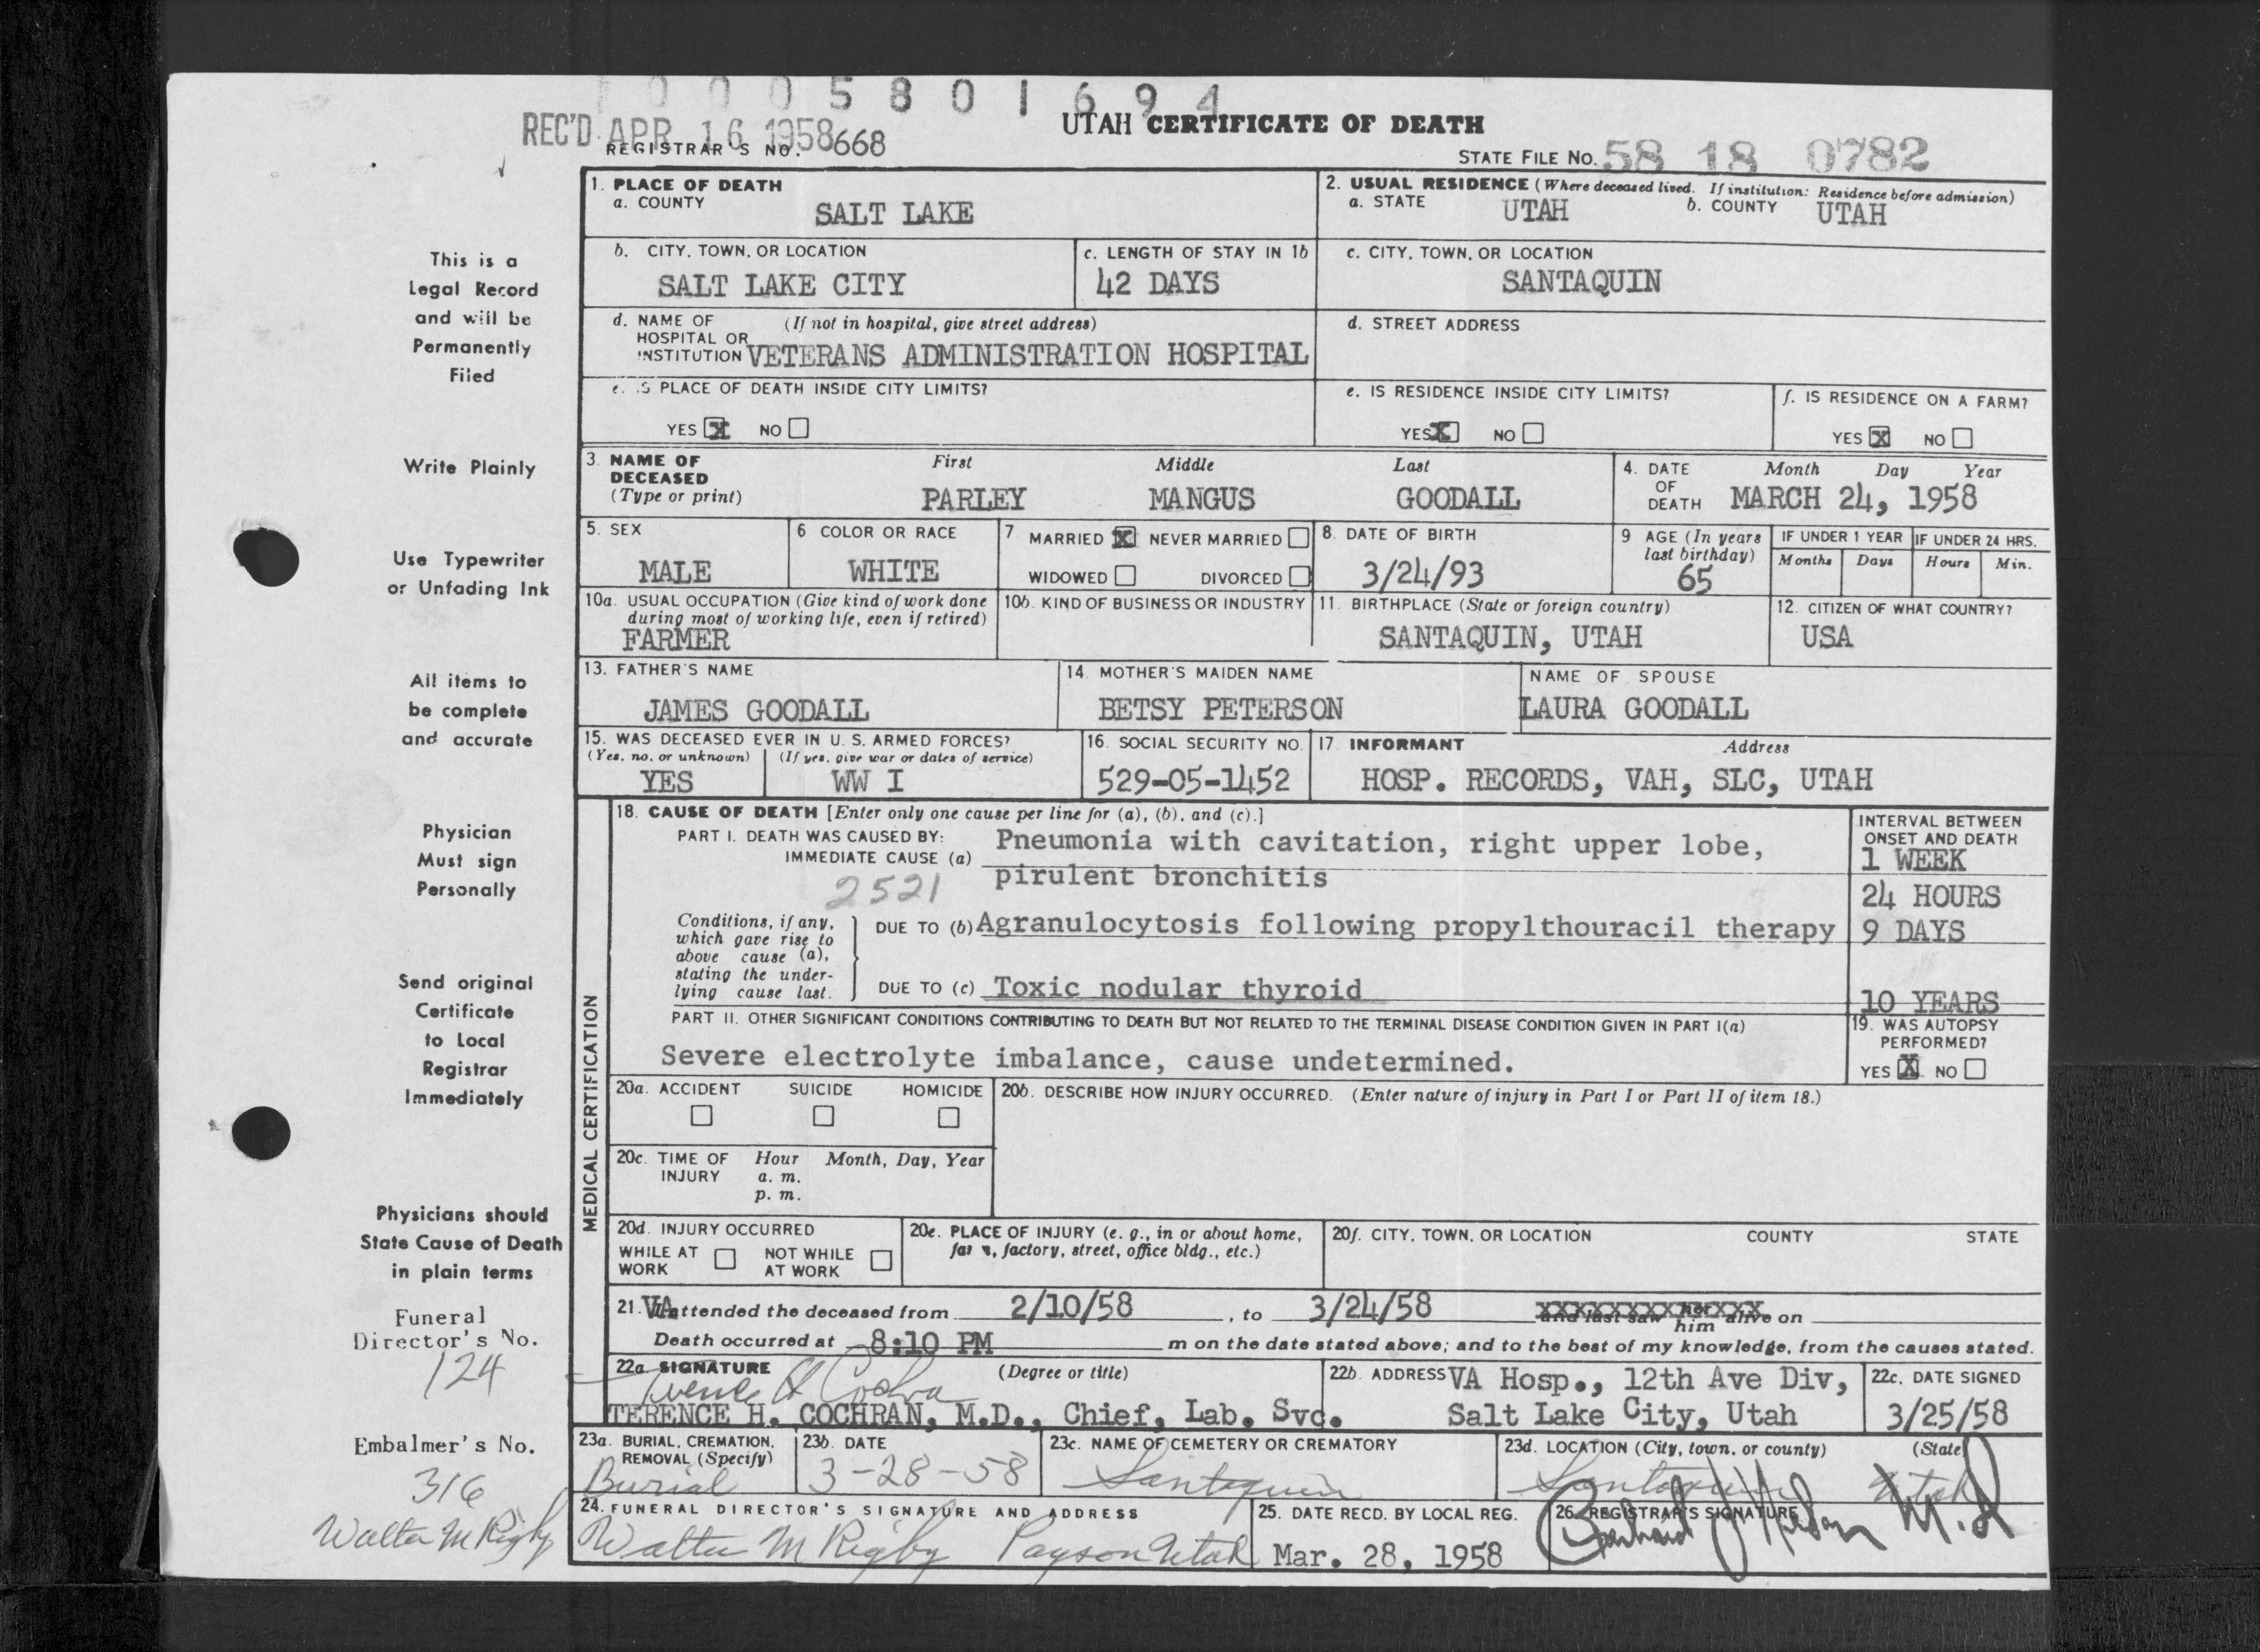 0 0 0 5 8 0 1 6 9 4
REC'D APR 16 1958
UTAH CERTIFICATE OF DEATH
REGISTRAR'S NO. 668
STATE FILE NO. 58 18 0782
1. PLACE OF DEATH
a. COUNTY
SALT LAKE
2. USUAL RESIDENCE (Where deceased lived. If institution: Residence before admission)
a. STATE UTAH b. COUNTY UTAH
b. CITY, TOWN, OR LOCATION
SALT LAKE CITY
c. LENGTH OF STAY IN 1b
42 DAYS
c. CITY, TOWN, OR LOCATION
SANTAQUIN
d. NAME OF (If not in hospital, give street address)
HOSPITAL OR
INSTITUTION VETERANS ADMINISTRATION HOSPITAL
d. STREET ADDRESS
e. IS PLACE OF DEATH INSIDE CITY LIMITS?
YES X NO
e. IS RESIDENCE INSIDE CITY LIMITS?
YES X NO
f. IS RESIDENCE ON A FARM?
YES X NO
3. NAME OF DECEASED (Type or print)
First Middle Last
PARLEY MANGUS GOODALL
4. DATE OF DEATH
Month Day Year
MARCH 24, 1958
5. SEX
MALE
6 COLOR OR RACE
WHITE
7 MARRIED X NEVER MARRIED
WIDOWED DIVORCED
8. DATE OF BIRTH
3/24/93
9 AGE (In years last birthday)
65
IF UNDER 1 YEAR
Months Days
IF UNDER 24 HRS.
Hours Min.
10a. USUAL OCCUPATION (Give kind of work done
during most of working life, even if retired)
FARMER
10b. KIND OF BUSINESS OR INDUSTRY
11. BIRTHPLACE (State or foreign country)
SANTAQUIN, UTAH
12. CITIZEN OF WHAT COUNTRY?
USA
13. FATHER'S NAME
JAMES GOODALL
14. MOTHER'S MAIDEN NAME
BETSY PETERSON
NAME OF SPOUSE
LAURA GOODALL
15. WAS DECEASED EVER IN U. S. ARMED FORCES?
(Yes, no, or unknown) (If yes, give war or dates of service)
YES WW I
16. SOCIAL SECURITY NO.
529-05-1452
17. INFORMANT Address
HOSP. RECORDS, VAH, SLC, UTAH
MEDICAL CERTIFICATION
18. CAUSE OF DEATH [Enter only one cause per line for (a), (b), and (c).]
PART I. DEATH WAS CAUSED BY:
IMMEDIATE CAUSE (a) Pneumonia with cavitation, right upper lobe,
pirulent bronchitis
2521
INTERVAL BETWEEN
ONSET AND DEATH
1 WEEK
24 HOURS
Conditions, if any,
which gave rise to
above cause (a),
stating the under-
lying cause last.
DUE TO (b) Agranulocytosis following propylthouracil therapy
9 DAYS
DUE TO (c) Toxic nodular thyroid
10 YEARS
PART II. OTHER SIGNIFICANT CONDITIONS CONTRIBUTING TO DEATH BUT NOT RELATED TO THE TERMINAL DISEASE CONDITION GIVEN IN PART I(a)
Severe electrolyte imbalance, cause undetermined.
19. WAS AUTOPSY
PERFORMED?
YES X NO
20a. ACCIDENT SUICIDE HOMICIDE
20b. DESCRIBE HOW INJURY OCCURRED. (Enter nature of injury in Part I or Part II of item 18.)
20c. TIME OF INJURY
Hour Month, Day, Year
a. m.
p. m.
20d. INJURY OCCURRED
WHILE AT WORK NOT WHILE AT WORK
20e. PLACE OF INJURY (e. g., in or about home,
factory, street, office bldg., etc.)
20f. CITY, TOWN, OR LOCATION COUNTY STATE
21. VA attended the deceased from 2/10/58, to 3/24/58 and last saw her him alive on
Death occurred at 8:10 PM m on the date stated above; and to the best of my knowledge, from the causes stated.
22a. SIGNATURE (Degree or title)
Terence H Cochran
TERENCE H. COCHRAN, M.D., Chief, Lab. Svc.
22b. ADDRESS VA Hosp., 12th Ave Div,
Salt Lake City, Utah
22c. DATE SIGNED
3/25/58
23a. BURIAL, CREMATION,
REMOVAL (Specify)
Burial
23b. DATE
3-28-58
23c. NAME OF CEMETERY OR CREMATORY
Santaquin
23d. LOCATION (City, town, or county) (State)
Santaquin Utah
24. FUNERAL DIRECTOR'S SIGNATURE AND ADDRESS
Walter M Rigby Payson Utah
25. DATE RECD. BY LOCAL REG.
Mar. 28, 1958
26. REGISTRAR'S SIGNATURE
M.D
This is a
Legal Record
and will be
Permanently
Filed
Write Plainly
Use Typewriter
or Unfading Ink
All items to
be complete
and accurate
Physician
Must sign
Personally
Send original
Certificate
to Local
Registrar
Immediately
Physicians should
State Cause of Death
in plain terms
Funeral
Director's No.
124
Embalmer's No.
316
Walter M Rigby